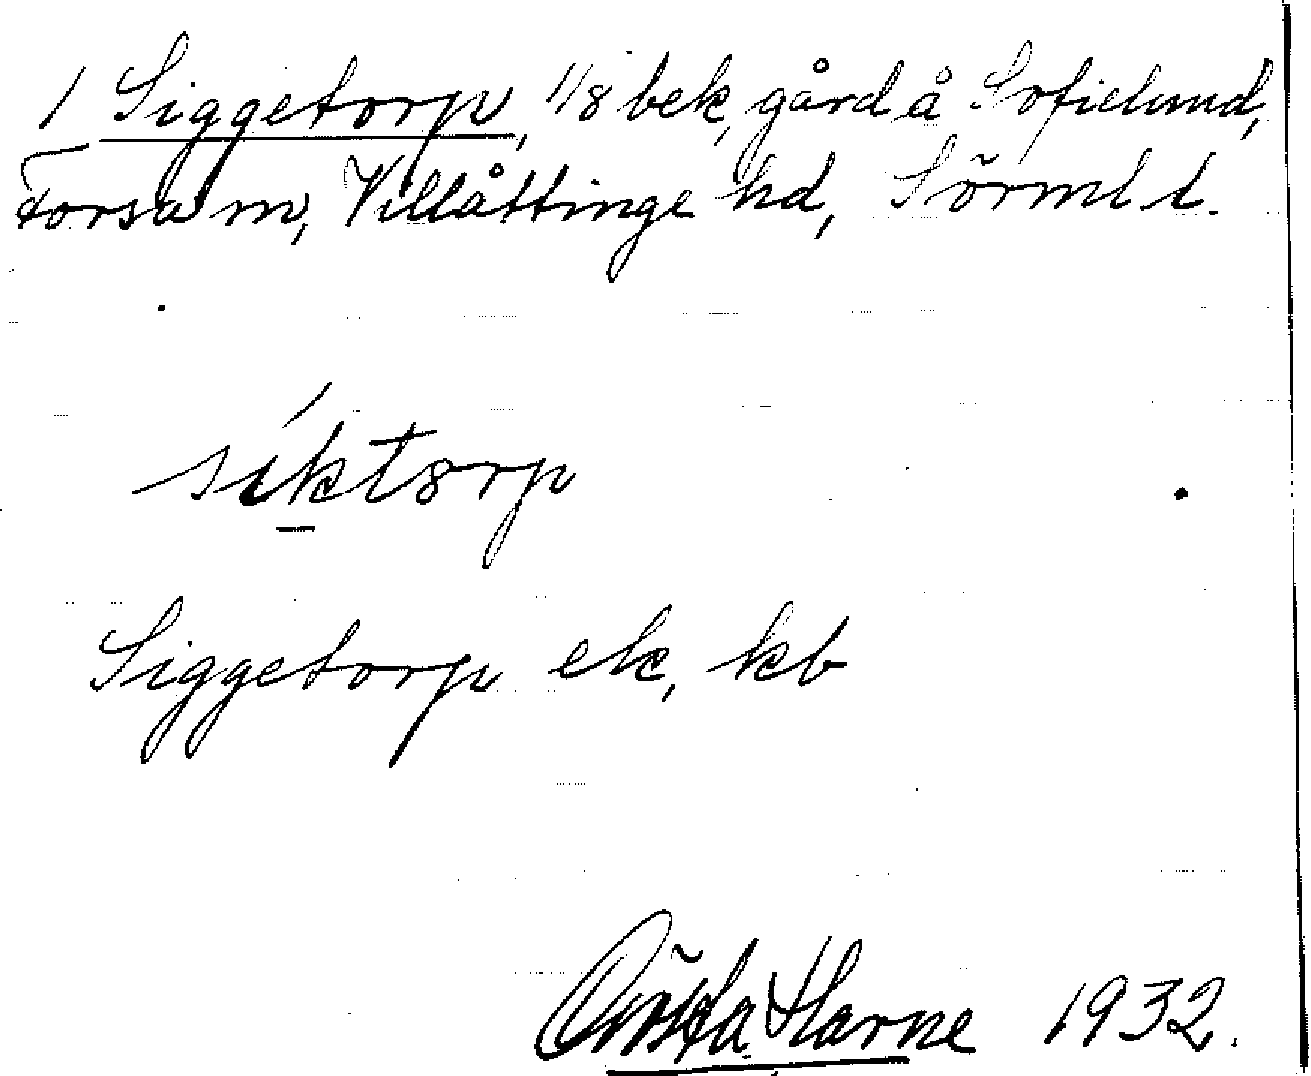 1 Siggetorp, 1/8 bek, gård å Sofielund,
Forsa sn, Villåttinge hd, Sörml l.
síktorp
Siggetorp ek, kb
Gösta Harne 1932.